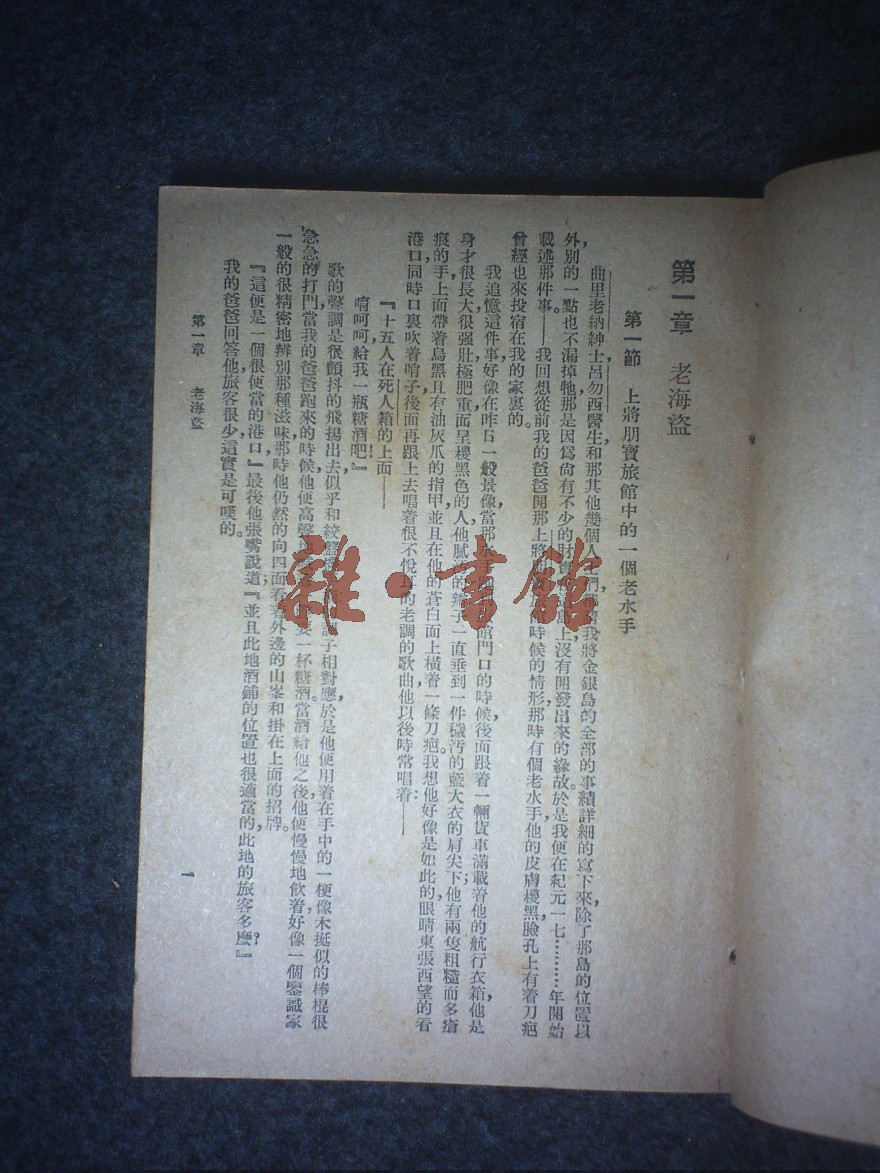 第一章 老海盜
第一節 上將朋寶旅館中的一個老水手
曲里老納紳士呂勿西醫生和那其他幾個人士們都請我將金銀島的全部的事績，詳細的寫下來，除了那島的位置以
外，別的一點也不漏掉牠，那是因爲尙有不少的財寶在島上，沒有開發出來的緣故，於是我便在紀元一七…………年開始
載述那件事——我回想從前我的爸爸開那上將朋寶旅館時候的情形，那時有個老水手，他的皮膚椶黑，臉孔上有着刀疤，
曾經也來投宿在我的家裏的。
我追憶這件事好像在昨日一般，景像當那老水手 館門口的時候，後面跟着一輛貨車，滿載着他的航行衣箱，他是
身才很長大，很强壯，極肥重，面呈椶黑色的人，他膩 的辮子一直垂到一件穢汚的藍大衣的肩尖下；他有兩隻粗糙而多瘡
痕的手，上面帶着烏黑且有油灰爪的指甲，並且在他的蒼白面上橫着一條刀疤。我想他好像是如此的，眼睛東張西望的看
港口，同時口裏吹着哨子，後面再跟上去唱着很不悅耳的老調的歌曲，他以後時常唱着：——
『十五人在死人箱的上面——
唷呵呵，給我一瓶糖酒吧！』
歌的聲調是很顫抖的飛揚出去，似乎和絞盤 調子相對應，於是他便用着在手中的一梗像木挺似的棒棍很
急急的打門，當我的爸爸跑來的時候，他便高聲地 要一杯糖酒。當酒給他之後，他便慢慢地飲着，好像一個鑒識家
一般的很精密地辨別那種滋味，那時他仍然的向四面看着外邊的山峯和掛在上面的招牌。
『這便是一個很便當的港口，』最後他張嘴說道；『並且此地酒鋪的位置也很適當的，此地的旅客多麽？』
我的爸爸回答他，旅客很少，這實是可嘆的。
第一章 老海盜
一
雜·書館